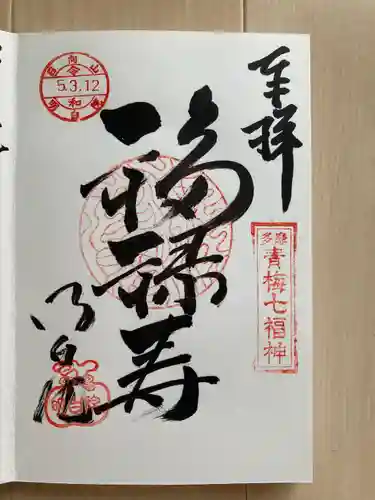 奉拝
多摩
青梅七福神
福禄寿
明白院
5.3.12